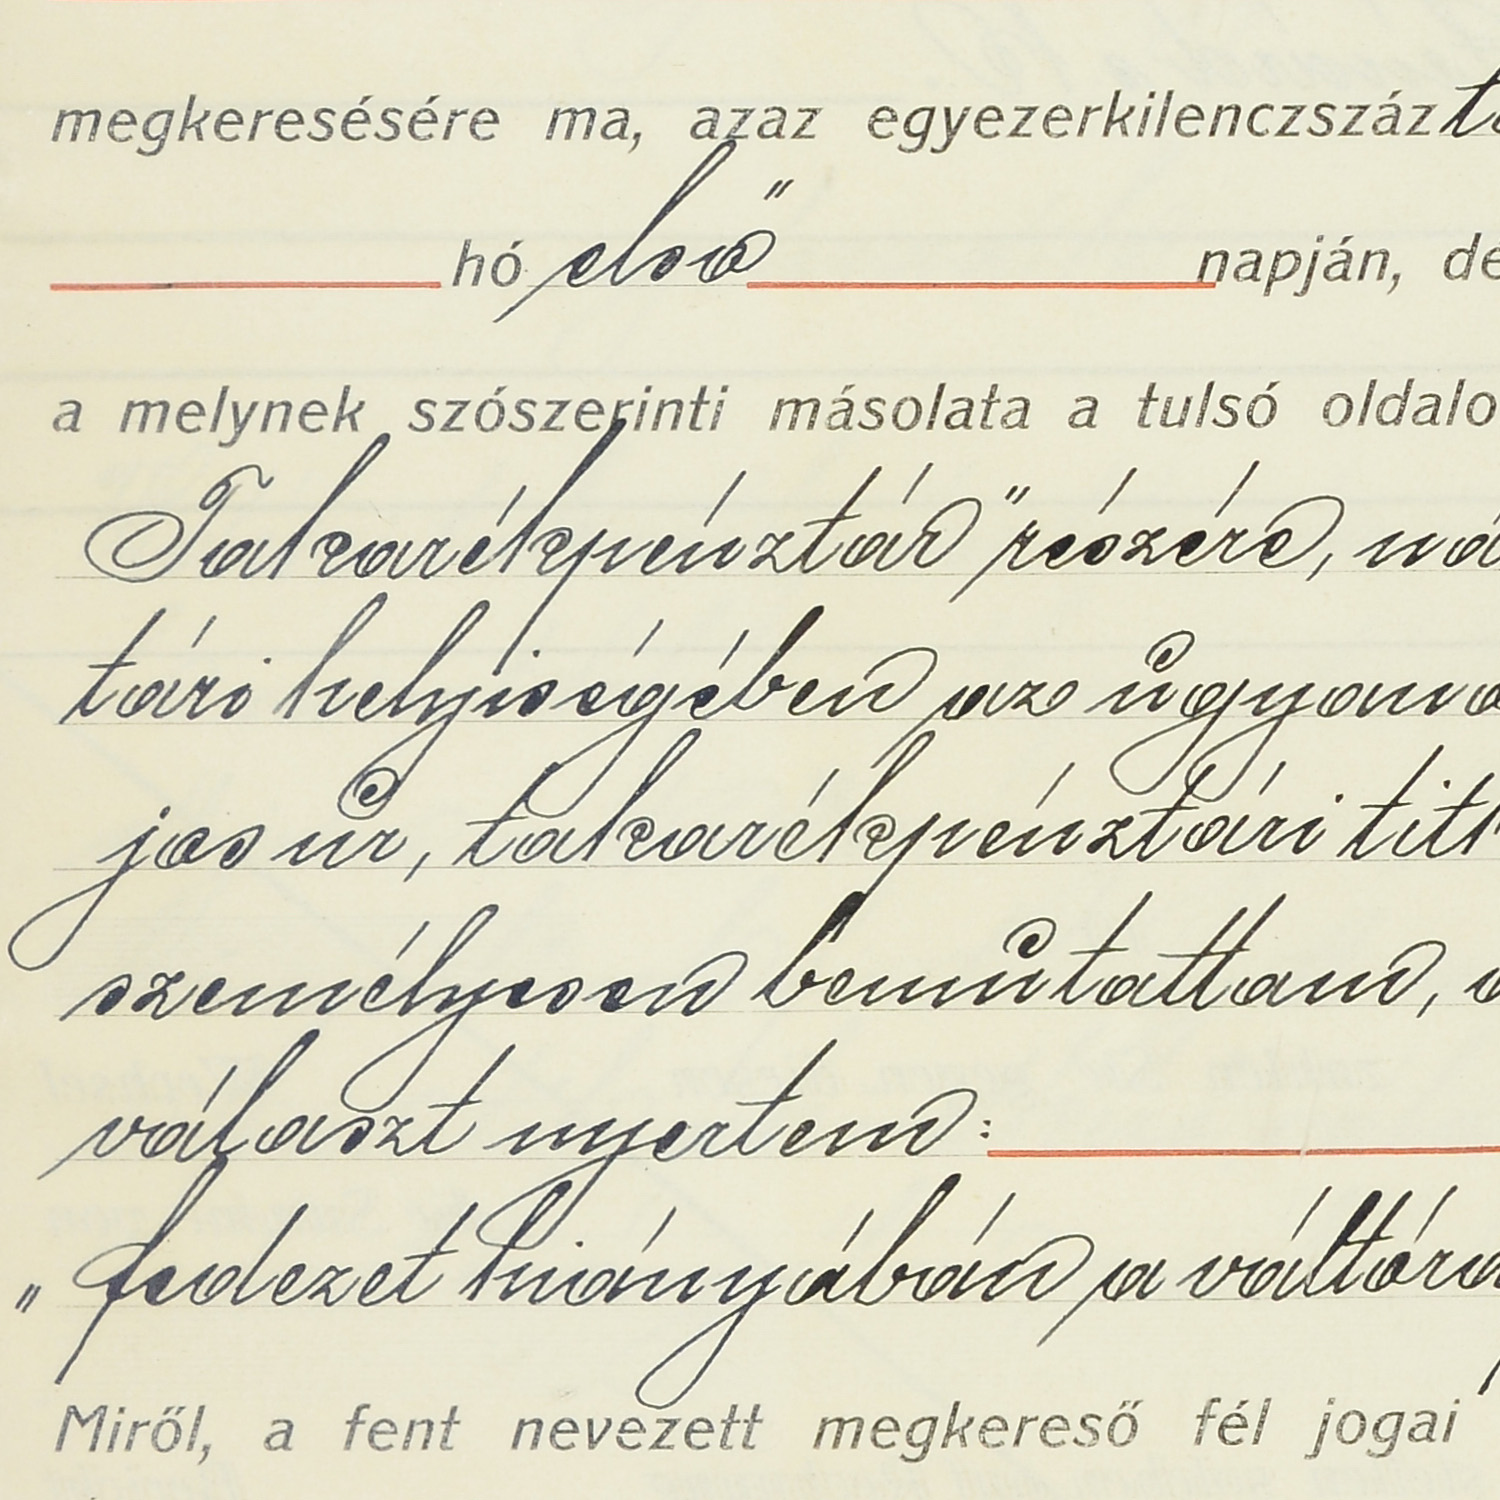 megkeresésére ma, azaz egyezerkilenczszáz
hó első napján, de
a melynek szószerinti másolata a tulsó oldalo
Takarékpénztár" részére, 
tári helyiségében az ugyana
jos ur, takarékpénztári titk
személyesen bemutattam, a
választ nyertem:
„fedezet hiányában a váltóra
Miről, a fent nevezett megkereső fél jogai